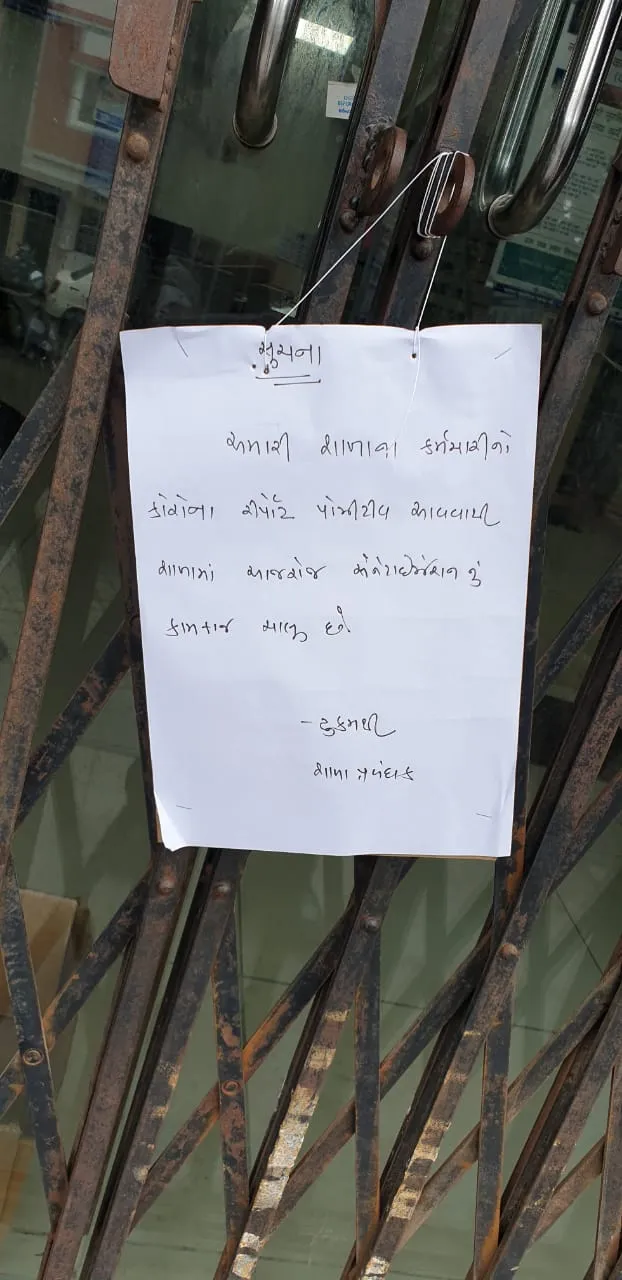 સુચના
અમારી શાખાના કર્મચારીનો
કોરોના રીપોર્ટ પોઝીટીવ આવવાથી
શાખામાં આજરોજ સેનેટાઈઝેશન નું
કામકાજ ચાલુ છે.
- હુકમથી
શાખા પ્રબંધક